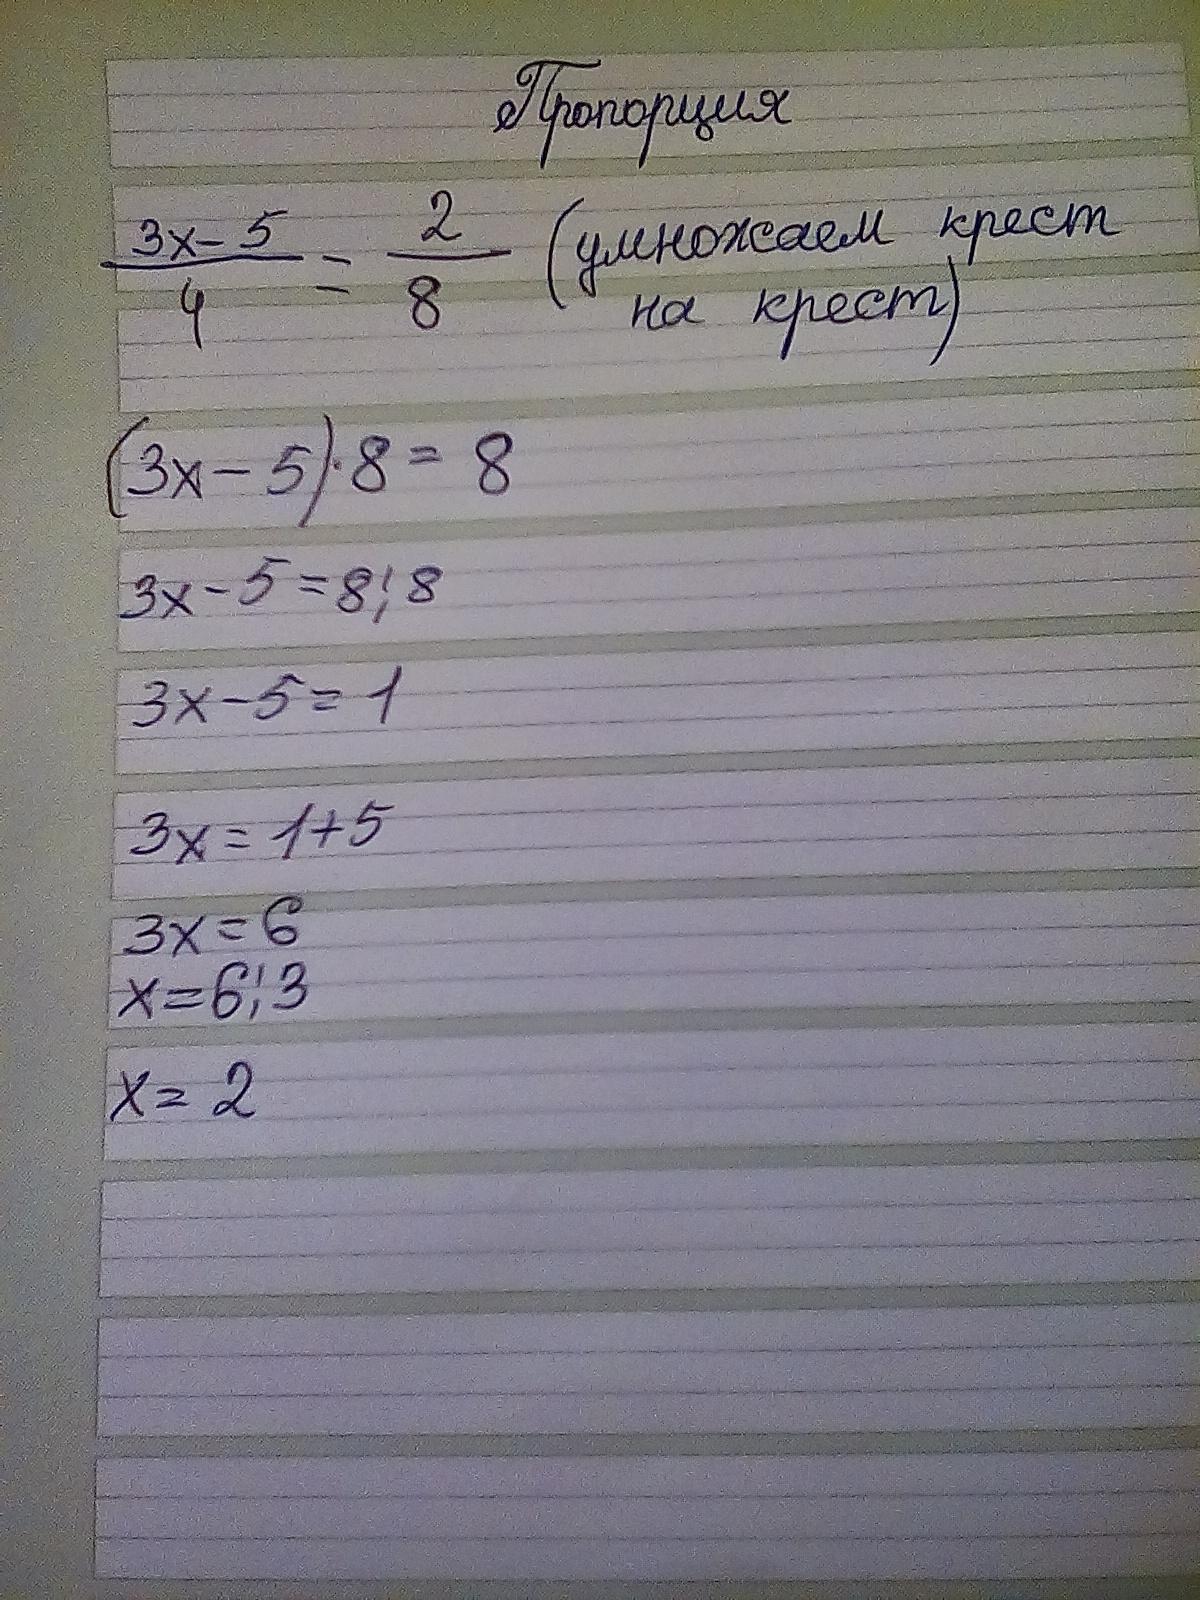 Пропорция
3x-5/4 = 2/8 (умножаем крест
на крест)
(3x-5)·8=8
3x-5=8:8
3x-5=1
3x=1+5
3x=6
x=6:3
x=2